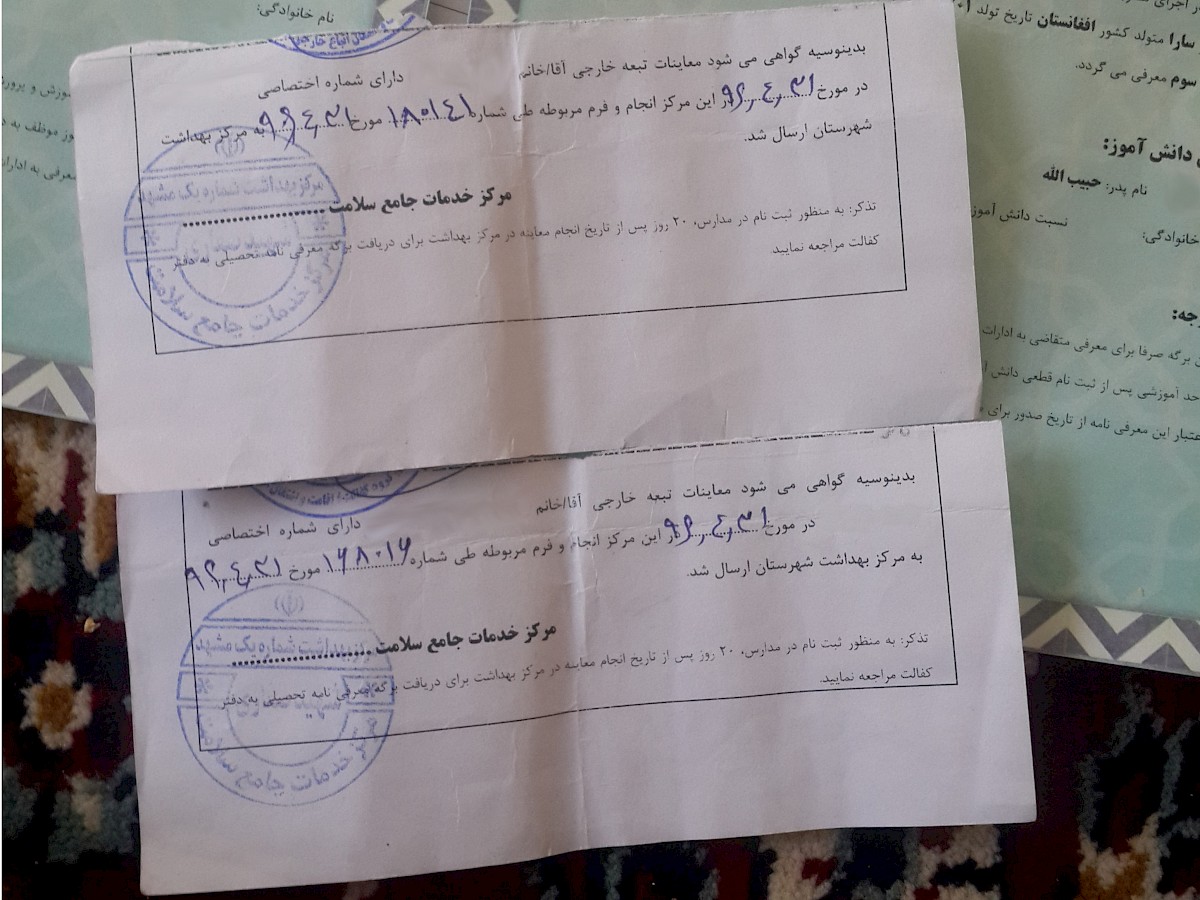 نام خانوادگی:
اتباع خارجی
بدینوسیه گواهی می شود معاینات تبعه خارجی آقا/خانم
دارای شماره اختصاصی
در مورخ ۹۶,۴,۳۱ در این مرکز انجام و فرم مربوطه طی شماره ۱۸۰۱۴۱ مورخ ۹۶,۴,۳۱ به مرکز بهداشت
شهرستان ارسال شد.
مرکز خدمات جامع سلامت
تذکر: به منظور ثبت نام در مدارس، ۲۰ روز پس از تاریخ انجام معاینه در مرکز بهداشت برای دریافت برگه معرفی نامه تحصیلی به دفتر
کفالت مراجعه نمایید
مرکز بهداشت شماره یک مشهد
مرکز خدمات جامع سلامت
بدینوسیه گواهی می شود معاینات تبعه خارجی آقا/خانم
دارای شماره اختصاصی
در مورخ ۹۶,۴,۳۱ در این مرکز انجام و فرم مربوطه طی شماره ۱۶۸۰۱۶ مورخ ۹۶,۴,۳۱
به مرکز بهداشت شهرستان ارسال شد.
مرکز خدمات جامع سلامت
تذکر: به منظور ثبت نام در مدارس، ۲۰ روز پس از تاریخ انجام معاینه در مرکز بهداشت برای دریافت برگه معرفی نامه تحصیلی به دفتر
کفالت مراجعه نمایید.
مرکز بهداشت شماره یک مشهد
مرکز خدمات جامع سلامت
سارا متولد کشور افغانستان تاریخ تولد
سوم معرفی می گردد.
دانش آموز:
نام پدر: حبیب الله
نسبت دانش آموز
خانوادگی:
برگه صرفا برای معرفی متقاضی به ادارات
آموزشی پس از ثبت نام قطعی دانش
این معرفی نامه از تاریخ صدور برای